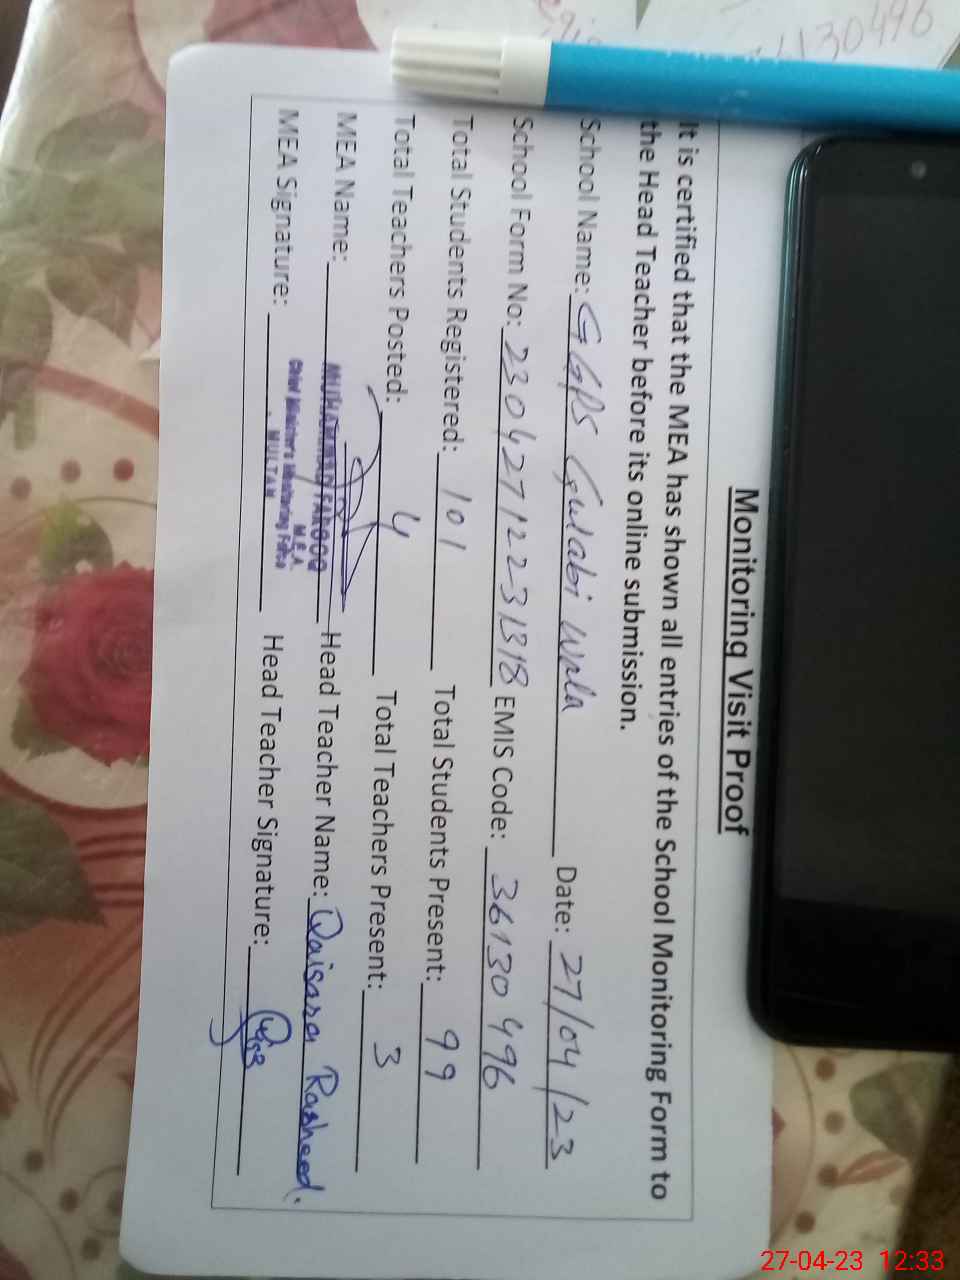 130496
Monitoring Visit Proof
It is certified that the MEA has shown all entries of the School Monitoring Form to
the Head Teacher before its online submission.
School Name: GGPS Gulabi Wala Date: 27/04/23
School Form No: 23042712231318 EMIS Code: 36130496
Total Students Registered: 101 Total Students Present: 99
Total Teachers Posted: 4 Total Teachers Present: 3
MEA Name: MUHAMMAD FAROOQ Head Teacher Name: Qaisara Rasheed.
M.E.A.
Chief Minister's Monitoring Force
MULTAN
MEA Signature: Head Teacher Signature:
27-04-23 12:33